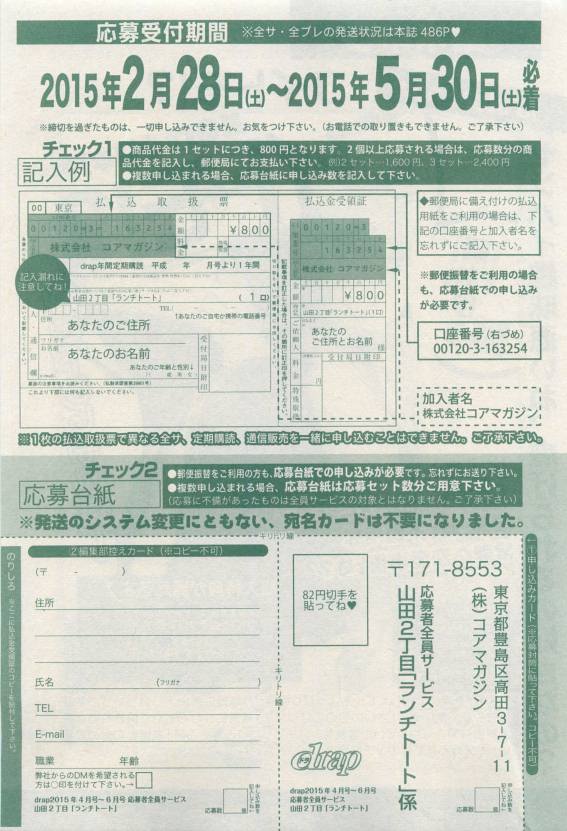 応募受付期間 ※全サ・全プレの発送状況は本誌 486P♥
2015年2月28日(土)〜2015年5月30日(土)必着
※締切を過ぎたものは、一切申し込みできません。お気をつけ下さい。(お電話での取り置きもできません。ご了承下さい)
チェック1
記入例
●商品代金は1セットにつき、800円となります。2個以上応募される場合は、応募数分の商
品代金を記入し、郵便局にてお支払い下さい。例)2セット…1,600円、3セット…2,400円
●複数申し込まれる場合、応募台紙に申し込み数を記入して下さい。
00 東京
払込取扱票
00120=3
163254
金額
¥800
料金
株式会社 コアマガジン
drap年間定期購読 平成 年 月号より1年間
記入漏れに
注意してね!
山田2丁目「ランチトート」
(1口)
TEL
↑あなたのご自宅か携帯の電話番号
通信欄
住所
あなたのご住所
フリガナ
お名前
あなたのお名前
あなたのご年齢と性別↓
e-mail
受付局日附印
これより下部には何も記入しないでください。
記載事項を訂正した場合は、その箇所に訂正印を押してください。
払込金受領証
00120=3
163254
株式会社 コアマガジン
金額
¥800
山田2丁目「ランチトート」(1口)
あなたの
ご住所とお名前
様
料金
円
特殊取扱
受付局日附印
◆郵便局に備え付けの払込
用紙をご利用の場合は、下
記の口座番号と加入者名を
忘れずにご記入下さい。
※郵便振替をご利用の場合
も、応募台紙での申し込み
が必要です。
口座番号(右づめ)
00120-3-163254
加入者名
株式会社コアマガジン
※1枚の払込取扱票で異なる全サ、定期購読、通信販売を一緒に申し込むことはできません。ご了承下さい。
チェック2
応募台紙
●郵便振替をご利用の方も、応募台紙での申し込みが必要です。忘れずにお送り下さい。
●複数申し込まれる場合、応募台紙は応募セット数分ご用意下さい。
(応募に不備があったものは全員サービスの対象とはなりません。ご了承下さい)
※発送のシステム変更にともない、宛名カードは不要になりました。
キリトリ線
のりしろ ※ここに払込金受領証のコピーを貼付して下さい。
②編集部控えカード(※コピー不可)
(〒 - )
住所
氏名 (フリガナ )
TEL
E-mail
職業 年齢
弊社からのDMを希望される
方は○印を付けて下さい。→
drap2015年4月号〜6月号 応募者全員サービス
山田2丁目「ランチトート」
応募数 個
申し込み数を記入してね!
キリトリ線
82円切手を
貼ってね♥
〒171-8553
東京都豊島区高田3-7-11
(株)コアマガジン
応募者全員サービス
山田2丁目「ランチトート」係
drap
drap2015年4月号〜6月号
応募者全員サービス
山田2丁目「ランチトート」
応募数 個
申し込み数を記入してね!
①申し込みカード(※応募封筒に貼って下さい。コピー不可)